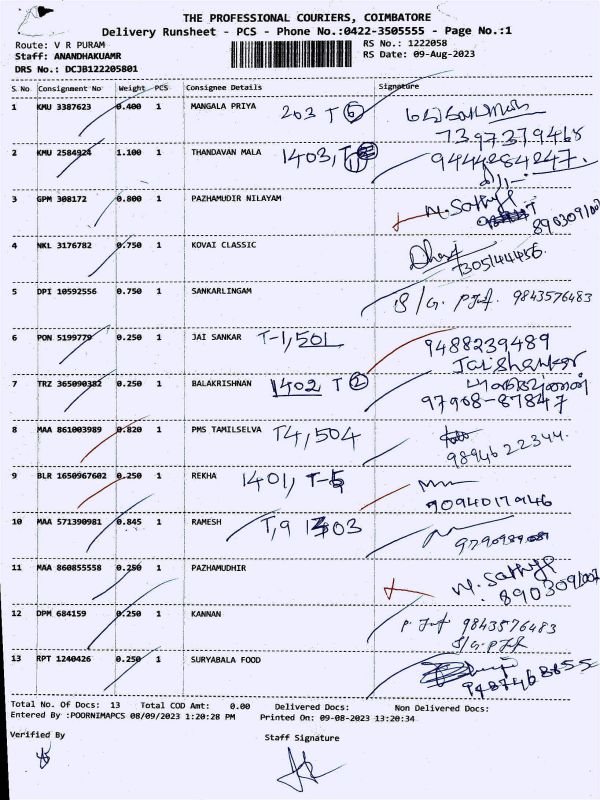 THE PROFESSIONAL COURIERS, COIMBATORE
Delivery Runsheet - PCS - Phone No.:0422-3505555 - Page No.:1
Route: V R PURAM RS No.: 1222058
Staff: ANANDHAKUAMR RS Date: 09-Aug-2023
DRS No.: DCJB122205801
S. No Consignment No Weight PCS Consignee Details Signature
1 KMU 3387623 0.400 1 MANGALA PRIYA 203 T 6
7397379468
2 KMU 2584924 1.100 1 THANDAVAN MALA 1403, 9444284247.
3 GPM 308172 0.800 1 PAZHAMUDIR NILAYAM M. Sathya
4 NKL 3176782 0.750 1 KOVAI CLASSIC
5 DPI 10592556 0.750 1 SANKARLINGAM S/G. 9843576483
6 PON 5199779 0.250 1 JAI SANKAR T-1, 501 9488239489
Jaishankar
7 TRZ 365090382 0.250 1 BALAKRISHNAN 1402 T 2
97908-87847
8 MAA 861003989 0.820 1 PMS TAMILSELVA T4, 504
9894622344.
9 BLR 1650967602 0.250 1 REKHA 1401, T-5
10 MAA 571390981 0.845 1 RAMESH T,9
11 MAA 860855558 0.250 1 PAZHAMUDHIR M. Sathya
12 DPM 684159 0.250 1 KANNAN 9843576483
S/G.
13 RPT 1240426 0.250 1 SURYABALA FOOD
9487468855
Total No. Of Docs: 13 Total COD Amt: 0.00 Delivered Docs: Non Delivered Docs:
Entered By :POORNIMAPCS 08/09/2023 1:20:28 PM Printed On: 09-08-2023 13:20:34
Verified By Staff Signature